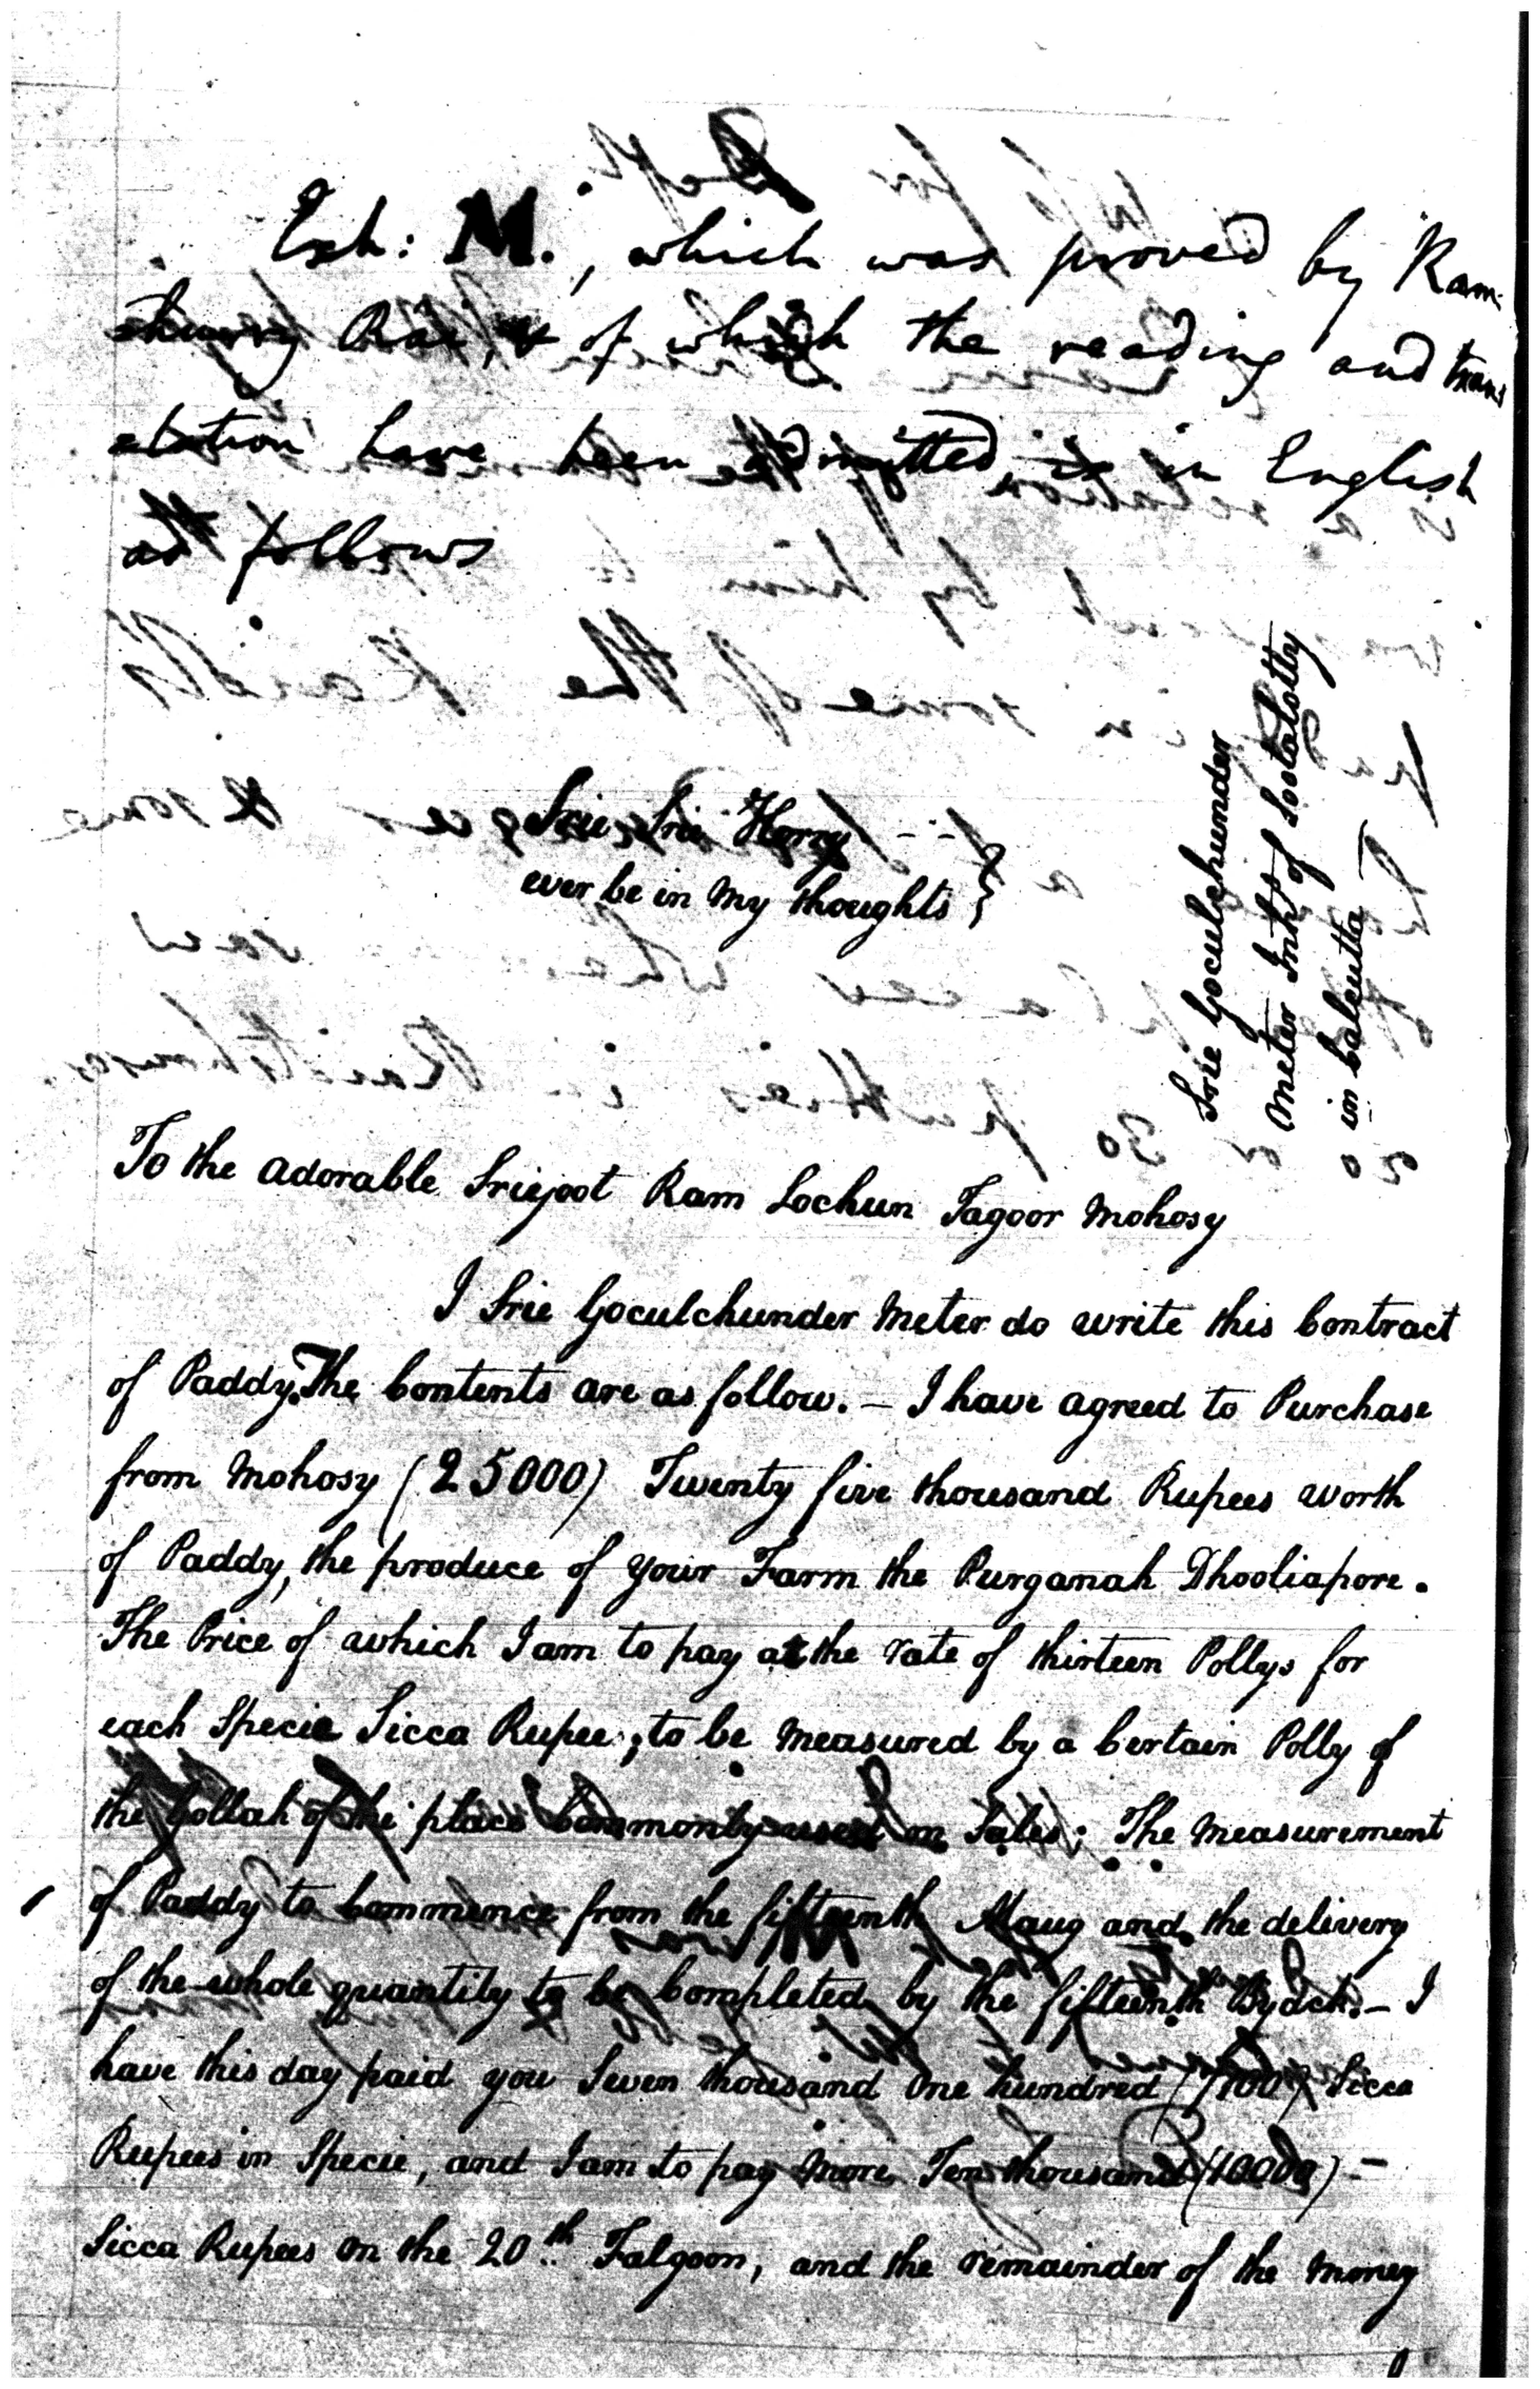 Exh: M., which was proved by Ram-
thurry Rai, & of which the reading and trans
elation have been admitted, is in English
as follows
Srie Srie Horry
ever be in my thoughts
Srie Goculchunder
Meter Inht of Sootalotty
in Calcutta
To the adorable Sriejoot Ram Lochun Tagoor Mohosy
I Srie Goculchunder Meter do write this Contract
of Paddy. The Contents are as follow. – I have agreed to Purchase
from Mohosy (25000) Twenty five thousand Rupees worth
of Paddy, the produce of your Farm the Purganah Dhooliapore.
The Price of which I am to pay at the rate of thirteen Pollys for
each Specie Sicca Rupee; to be measured by a Certain Polly of
the Gollah of the place Commonly used in Sales; The measurement
of Paddy to Commence from the fifteenth Maug and the delivery
of the whole quantity to be Completed by the fifteenth Bydack. – I
have this day paid you Seven thousand One hundred (7100) Sicca
Rupees in Specie, and I am to pay more Ten thousand (10000) –
Sicca Rupees on the 20th Falgoon, and the remainder of the money